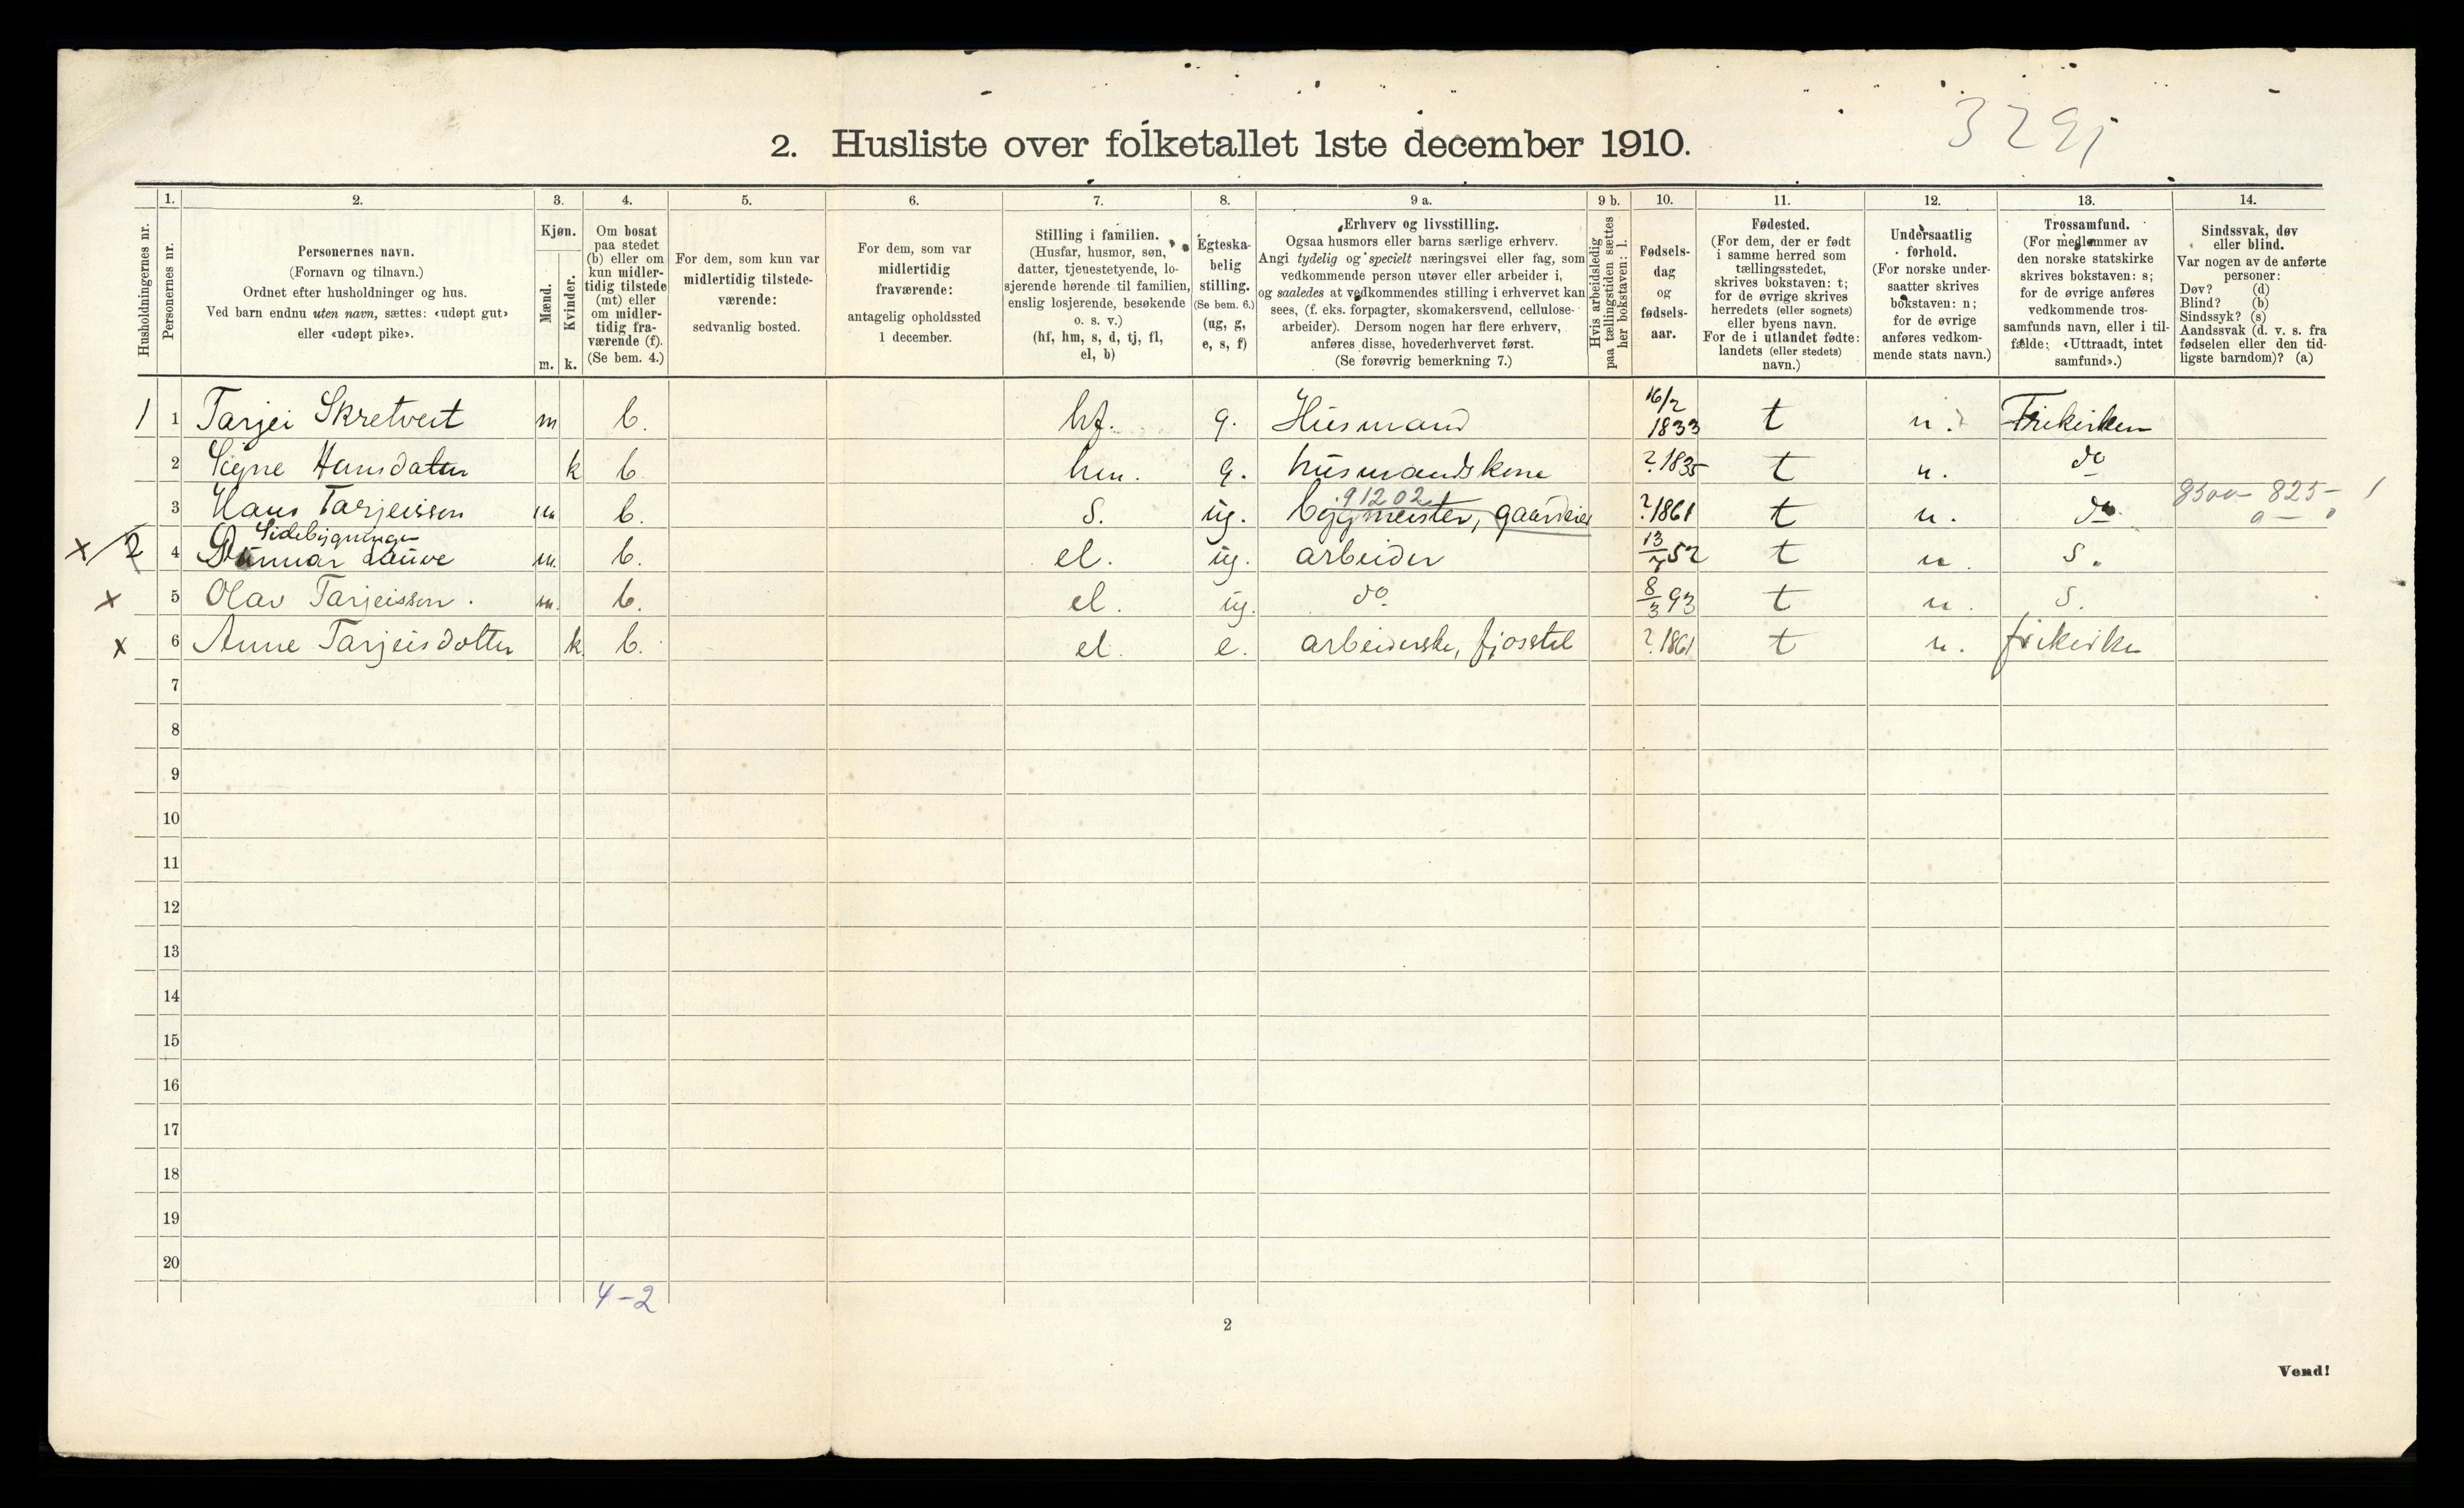 3291
2. Husliste over folketallet 1ste december 1910.
Husholdningernes nr.
1.
Personernes nr.
2.
Personernes navn.
(Fornavn og tilnavn.)
Ordnet efter husholdninger og hus.
Ved barn endnu uten navn, sættes: «udøpt gut»
eller «udøpt pike».
3.
Kjøn.
Mænd.
m.
Kvinder.
k.
4.
Om bosat
paa stedet
(b) eller om
kun midler-
tidig tilstede
(mt) eller
om midler-
tidig fra-
værende (f).
(Se bem. 4.)
5.
For dem, som kun var
midlertidig tilstede-
værende:
sedvanlig bosted.
6.
For dem, som var
midlertidig
fraværende:
antagelig opholdssted
1 december.
7.
Stilling i familien.
(Husfar, husmor, søn,
datter, tjenestetyende, lo-
sjerende hørende til familien,
enslig losjerende, besøkende
o. s. v.)
(hf, hm, s, d, tj, fl,
el, b)
8.
Egteska-
belig
stilling.
(Se bem. 6.)
(ug, g,
e, s, f)
9 a.
Erhverv og livsstilling.
Ogsaa husmors eller barns særlige erhverv.
Angi tydelig og specielt næringsvei eller fag, som
vedkommende person utøver eller arbeider i,
og saaledes at vedkommendes stilling i erhvervet kan
sees, (f. eks. forpagter, skomakersvend, cellulose-
arbeider). Dersom nogen har flere erhverv,
anføres disse, hovederhvervet først.
(Se forøvrig bemerkning 7.)
9 b.
Hvis arbeidsledig
paa tællingstiden sættes
her bokstaven: l.
10.
Fødsels-
dag
og
fødsels-
aar.
11.
Fødested.
(For dem, der er født
i samme herred som
tællingsstedet,
skrives bokstaven: t;
for de øvrige skrives
herredets (eller sognets)
eller byens navn.
For de i utlandet fødte:
landets (eller stedets)
navn.)
12.
Undersaatlig
forhold.
(For norske under-
saatter skrives
bokstaven: n;
for de øvrige
anføres vedkom-
mende stats navn.)
13.
Trossamfund.
(For medlemmer av
den norske statskirke
skrives bokstaven: s;
for de øvrige anføres
vedkommende tros-
samfunds navn, eller i til-
fælde: «Uttraadt, intet
samfund».)
14.
Sindssvak, døv
eller blind.
Var nogen av de anførte
personer:
Døv? (d)
Blind? (b)
Sindssyk? (s)
Aandssvak (d. v. s. fra
fødselen eller den tid-
ligste barndom)? (a)
1 1 Tarjei Skretveit m b. hf. g. Husmand 16/2 1833 t n. Frikirken
2 Signe Hansdater k b. hm. g. husmandskone ? 1835 t n. do
3 Hans Tarjeisson m b. s. ug. byggmeister, gaardeier ? 1861 t n. do
91202
8300 825- 1
Sidebygningen
x 2 4 Gunnar Lauve m. b. el. ug. arbeider 13/7 52 t n. s.
x 5 Olav Tarjeisson. m. b. el. ug. do 8/3 93 t n. s.
x 6 Anne Tarjeisdotter k. b. el. e. arbeiderske, fjosstel ? 1861 t n. frikirken
7
8
9
10
11
12
13
14
15
16
17
18
19
20
4-2
2
Vend!